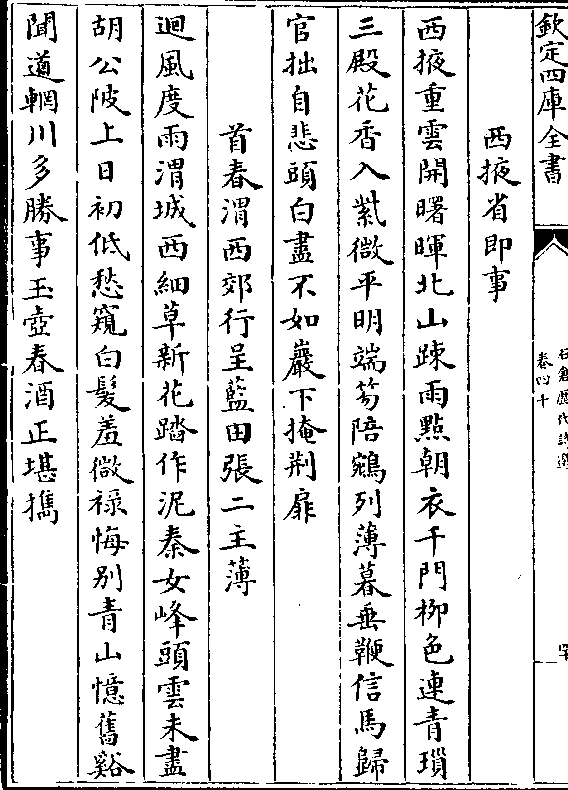 欽定四庫全書
卷四十
西掖省即事
西掖重雲開曙暉北山踈雨點朝衣千門栁色連青瑣
三殿花香入紫微平明端笏陪鵷列薄暮垂鞭信馬歸
官拙自悲頭白盡不如巖下掩荆扉
首春渭西郊行呈藍田張二主薄
迴風度雨渭城西細草新花踏作泥秦女峰頭雲未盡
胡公陂上日初低愁窺白髮羞微禄悔别青山憶舊谿
聞道輞川多勝事玉壺春酒正堪擕